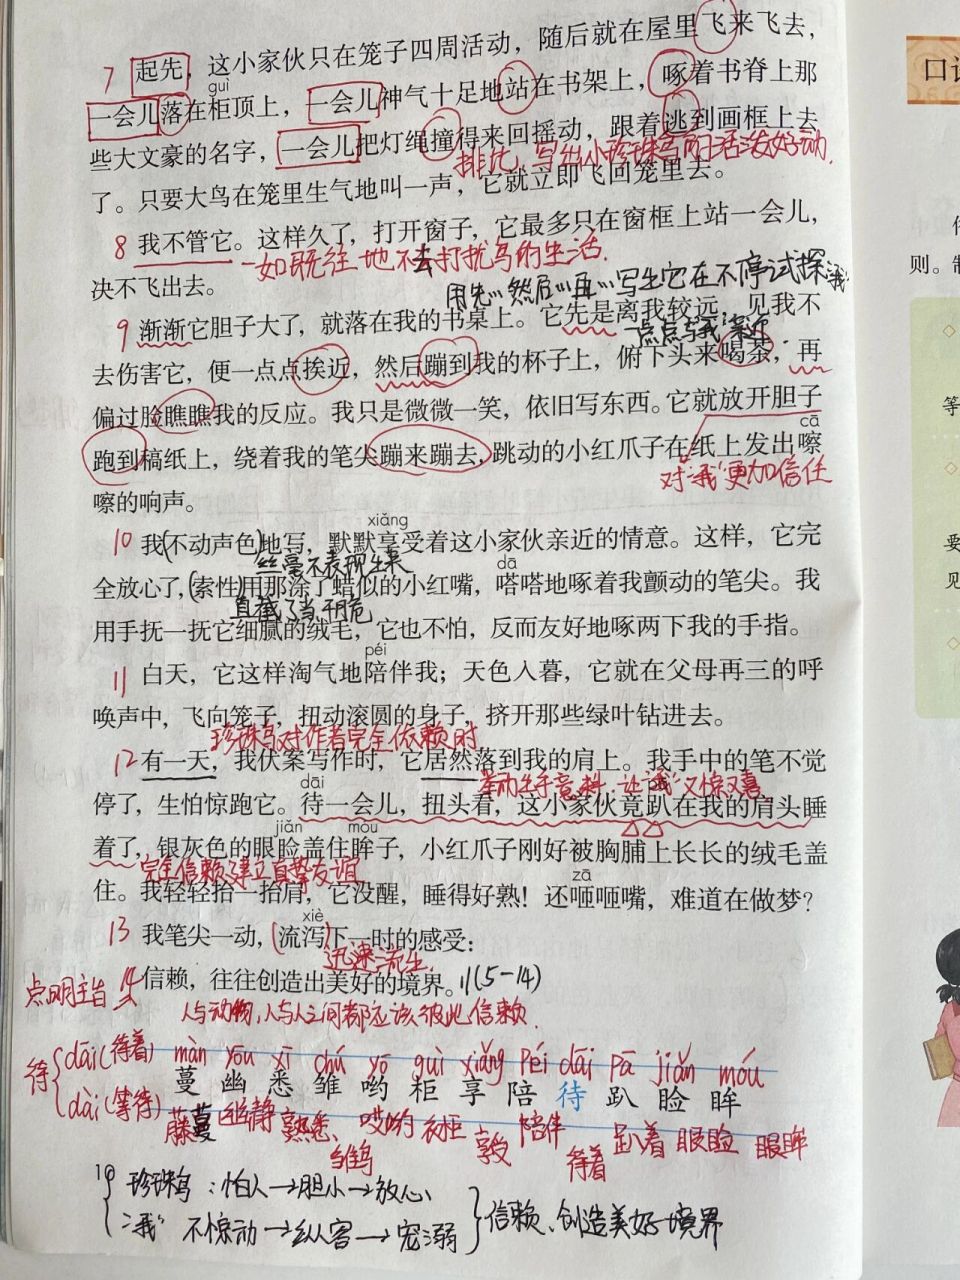 7 起先，这小家伙只在笼子四周活动，随后就在屋里飞来飞去，
guì
一会儿落在柜顶上，一会儿神气十足地站在书架上，啄着书脊上那
些大文豪的名字，一会儿把灯绳撞得来回摇动，跟着逃到画框上去
排比，写出小珍珠鸟的活泼好动.
了。只要大鸟在笼里生气地叫一声，它就立即飞回笼里去。
8 我不管它。这样久了，打开窗子，它最多只在窗框上站一会儿，
一如既往地不去打扰鸟的生活.
决不飞出去。
用先…然后…再…写出它在不停试探"我"
9 渐渐它胆子大了，就落在我的书桌上。它先是离我较远，见我不
一点点与我亲近.
去伤害它，便一点点挨近，然后蹦到我的杯子上，俯下头来喝茶，再
偏过脸瞧瞧我的反应。我只是微微一笑，依旧写东西。它就放开胆子
cā
跑到稿纸上，绕着我的笔尖蹦来蹦去，跳动的小红爪子在纸上发出嚓
对"我"更加信任
嚓的响声。
xiǎng
10 我(不动声色)地写，默默享受着这小家伙亲近的情意。这样，它完
丝毫不表现出来
dā
全放心了，(索性)用那涂了蜡似的小红嘴，嗒嗒地啄着我颤动的笔尖。我
直截了当,干脆
用手抚一抚它细腻的绒毛，它也不怕，反而友好地啄两下我的手指。
péi
11 白天，它这样淘气地陪伴我；天色入暮，它就在父母再三的呼
唤声中，飞向笼子，扭动滚圆的身子，挤开那些绿叶钻进去。
珍珠鸟对作者完全依赖时
12 有一天，我伏案写作时，它居然落到我的肩上。我手中的笔不觉
举动出乎意料.让"我"又惊又喜
dāi
停了，生怕惊跑它。待一会儿，扭头看，这小家伙竟趴在我的肩头睡
jiǎn móu
着了，银灰色的眼睑盖住眸子，小红爪子刚好被胸脯上长长的绒毛盖
完全信赖,建立真挚友谊
zā
住。我轻轻抬一抬肩，它没醒，睡得好熟！还咂咂嘴，难道在做梦？
xiè
13 我笔尖一动，(流泻)下一时的感受：
迅速流出.
点明主旨 14 信赖，往往创造出美好的境界。11(5-14)
人与动物,人与人之间都应该彼此信赖.
待 dāi(待着) màn yōu xī chú yō guì xiǎng péi dāi pā jiǎn móu
蔓 幽 悉 雏 哟 柜 享 陪 待 趴 睑 眸
dài(等待) 藤蔓 幽静 熟悉、雏鸟 哎哟 衣柜 享受 陪伴 待着 趴着 眼睑 眼眸
珍珠鸟：怕人→胆小→放心
"我" 不惊动→纵容→宠溺
信赖、创造美好境界
口语
则。制
等
要
见